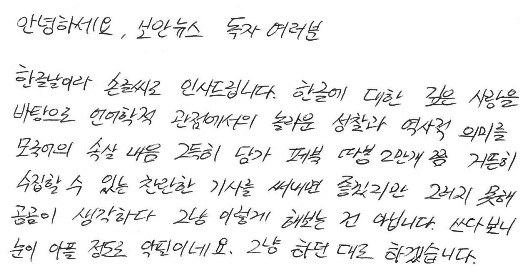 안녕하세요, 보안뉴스 독자 여러분
한글날이라 손글씨로 인사드립니다. 한글에 대한 깊은 사랑을
바탕으로 언어학적 관점에서의 놀라운 성찰과 역사적 의미를
모국어의 속살 내음 그득히 담가 페북 따봉 2만개 쯤 거든히
수집할 수 있는 찬란한 기사를 써내면 좋겠지만 그러지 못해
곰곰이 생각하다 그냥 이렇게 해보는 건 아닙니다. 쓰다보니
눈이 아플 정도로 악필이네요. 그냥 하던 대로 하겠습니다.